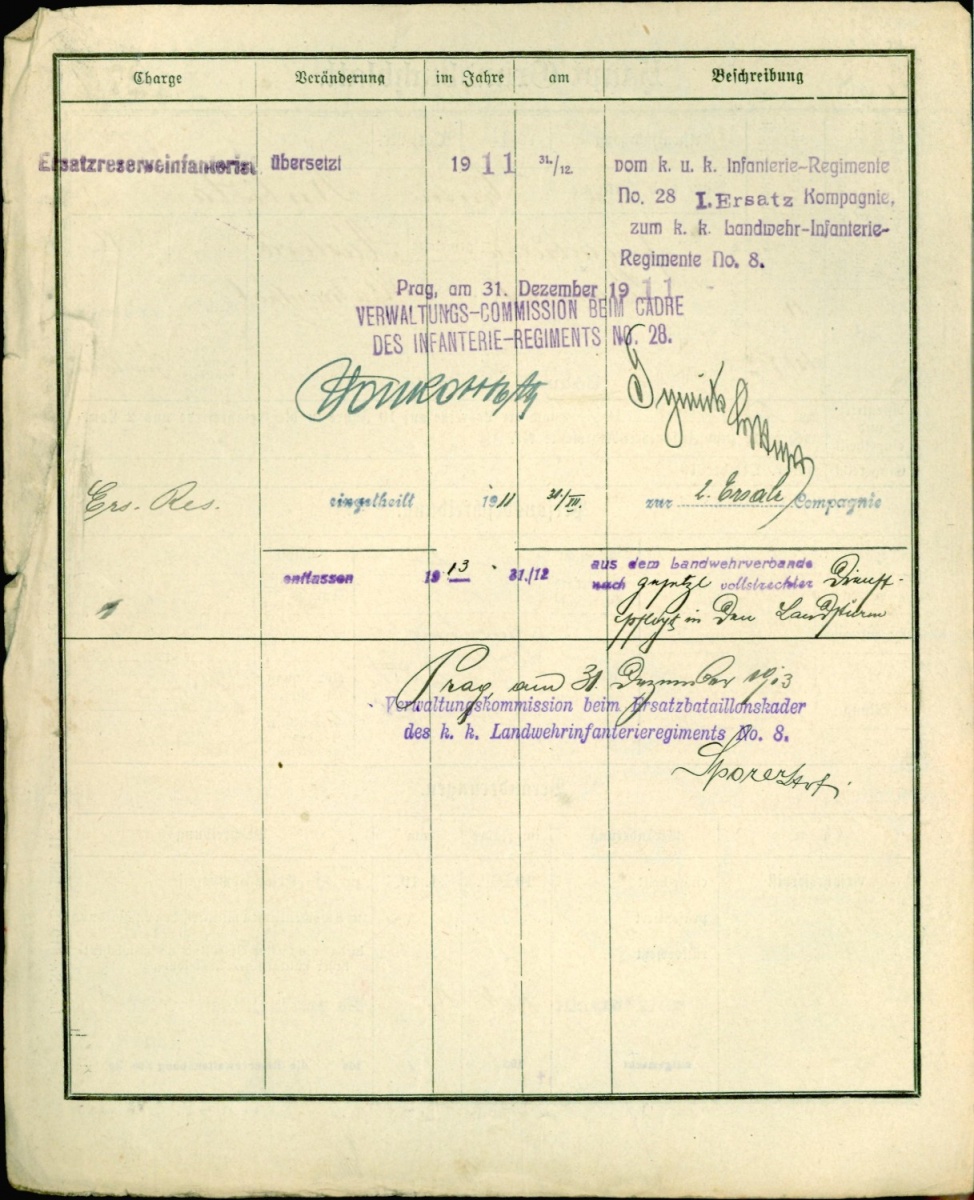 Charge Veränderung im Jahre am Beschreibung
Ersatzreserveinfanterist übersetzt 1911 31./12. vom k. u. k. Infanterie-Regimente
No. 28 I. Ersatz Kompagnie,
zum k. k. Landwehr-Infanterie-
Regimente No. 8.
Prag, am 31. Dezember 1911
VERWALTUNGS-COMMISSION BEIM CADRE
DES INFANTERIE-REGIMENTS NO. 28.
Ers. Res. eingetheilt 1911 31./XII. zur 2. Ersatz Compagnie
entlassen 1913 31./12 aus dem Landwehrverbande
nach gesetzl vollstreckter Dienst-
pflicht in den Landsturm
Prag, am 31. Dezember 1913
Verwaltungskommission beim Ersatzbataillonskader
des k. k. Landwehrinfanterieregiments No. 8.
Sporer